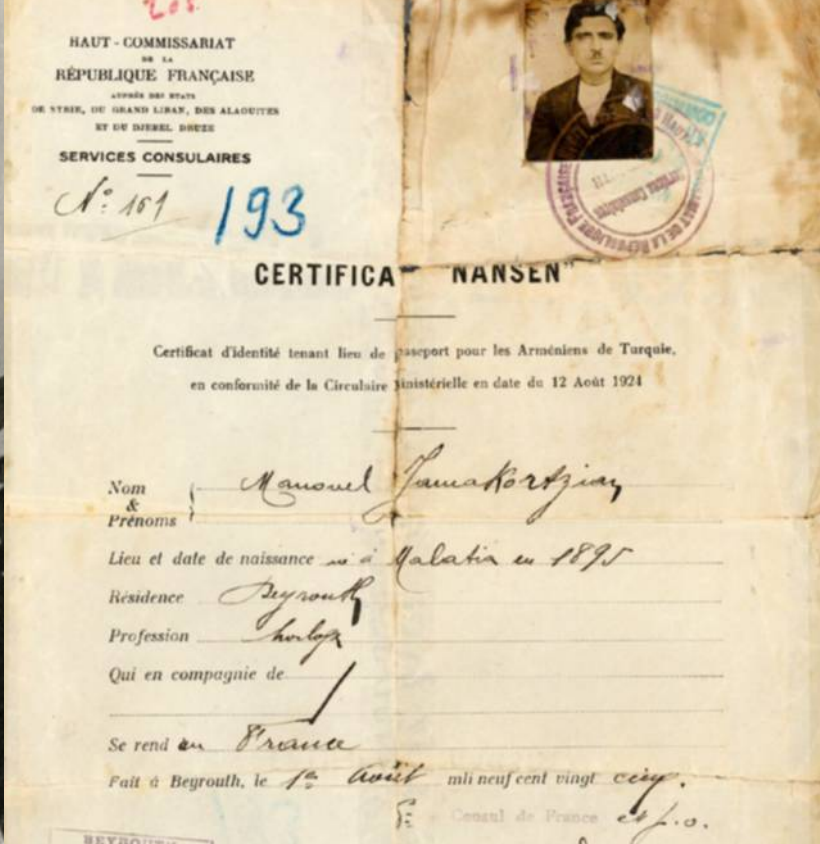 HAUT-COMMISSARIAT
DE LA
RÉPUBLIQUE FRANÇAISE
AUPRÈS DES ETATS
DE SYRIE, DU GRAND LIBAN, DES ALAOUITES
ET DU DJEBEL DRUZE
SERVICES CONSULAIRES
N° 161
193
CERTIFICA NANSEN"
Certificat d'identité tenant lieu de passeport pour les Arméniens de Turquie,
en conformité de la Circulaire Ministérielle en date du 12 Août 1924
Nom & Prénoms Manouel JamaKortzian
Lieu et date de naissance né à Malatia en 1895
Résidence Beyrouth
Profession
Qui en compagnie de /
Se rend en France
Fait à Beyrouth, le 1er Août mil neuf cent vingt cinq.
Consul de France
BEYROUTH